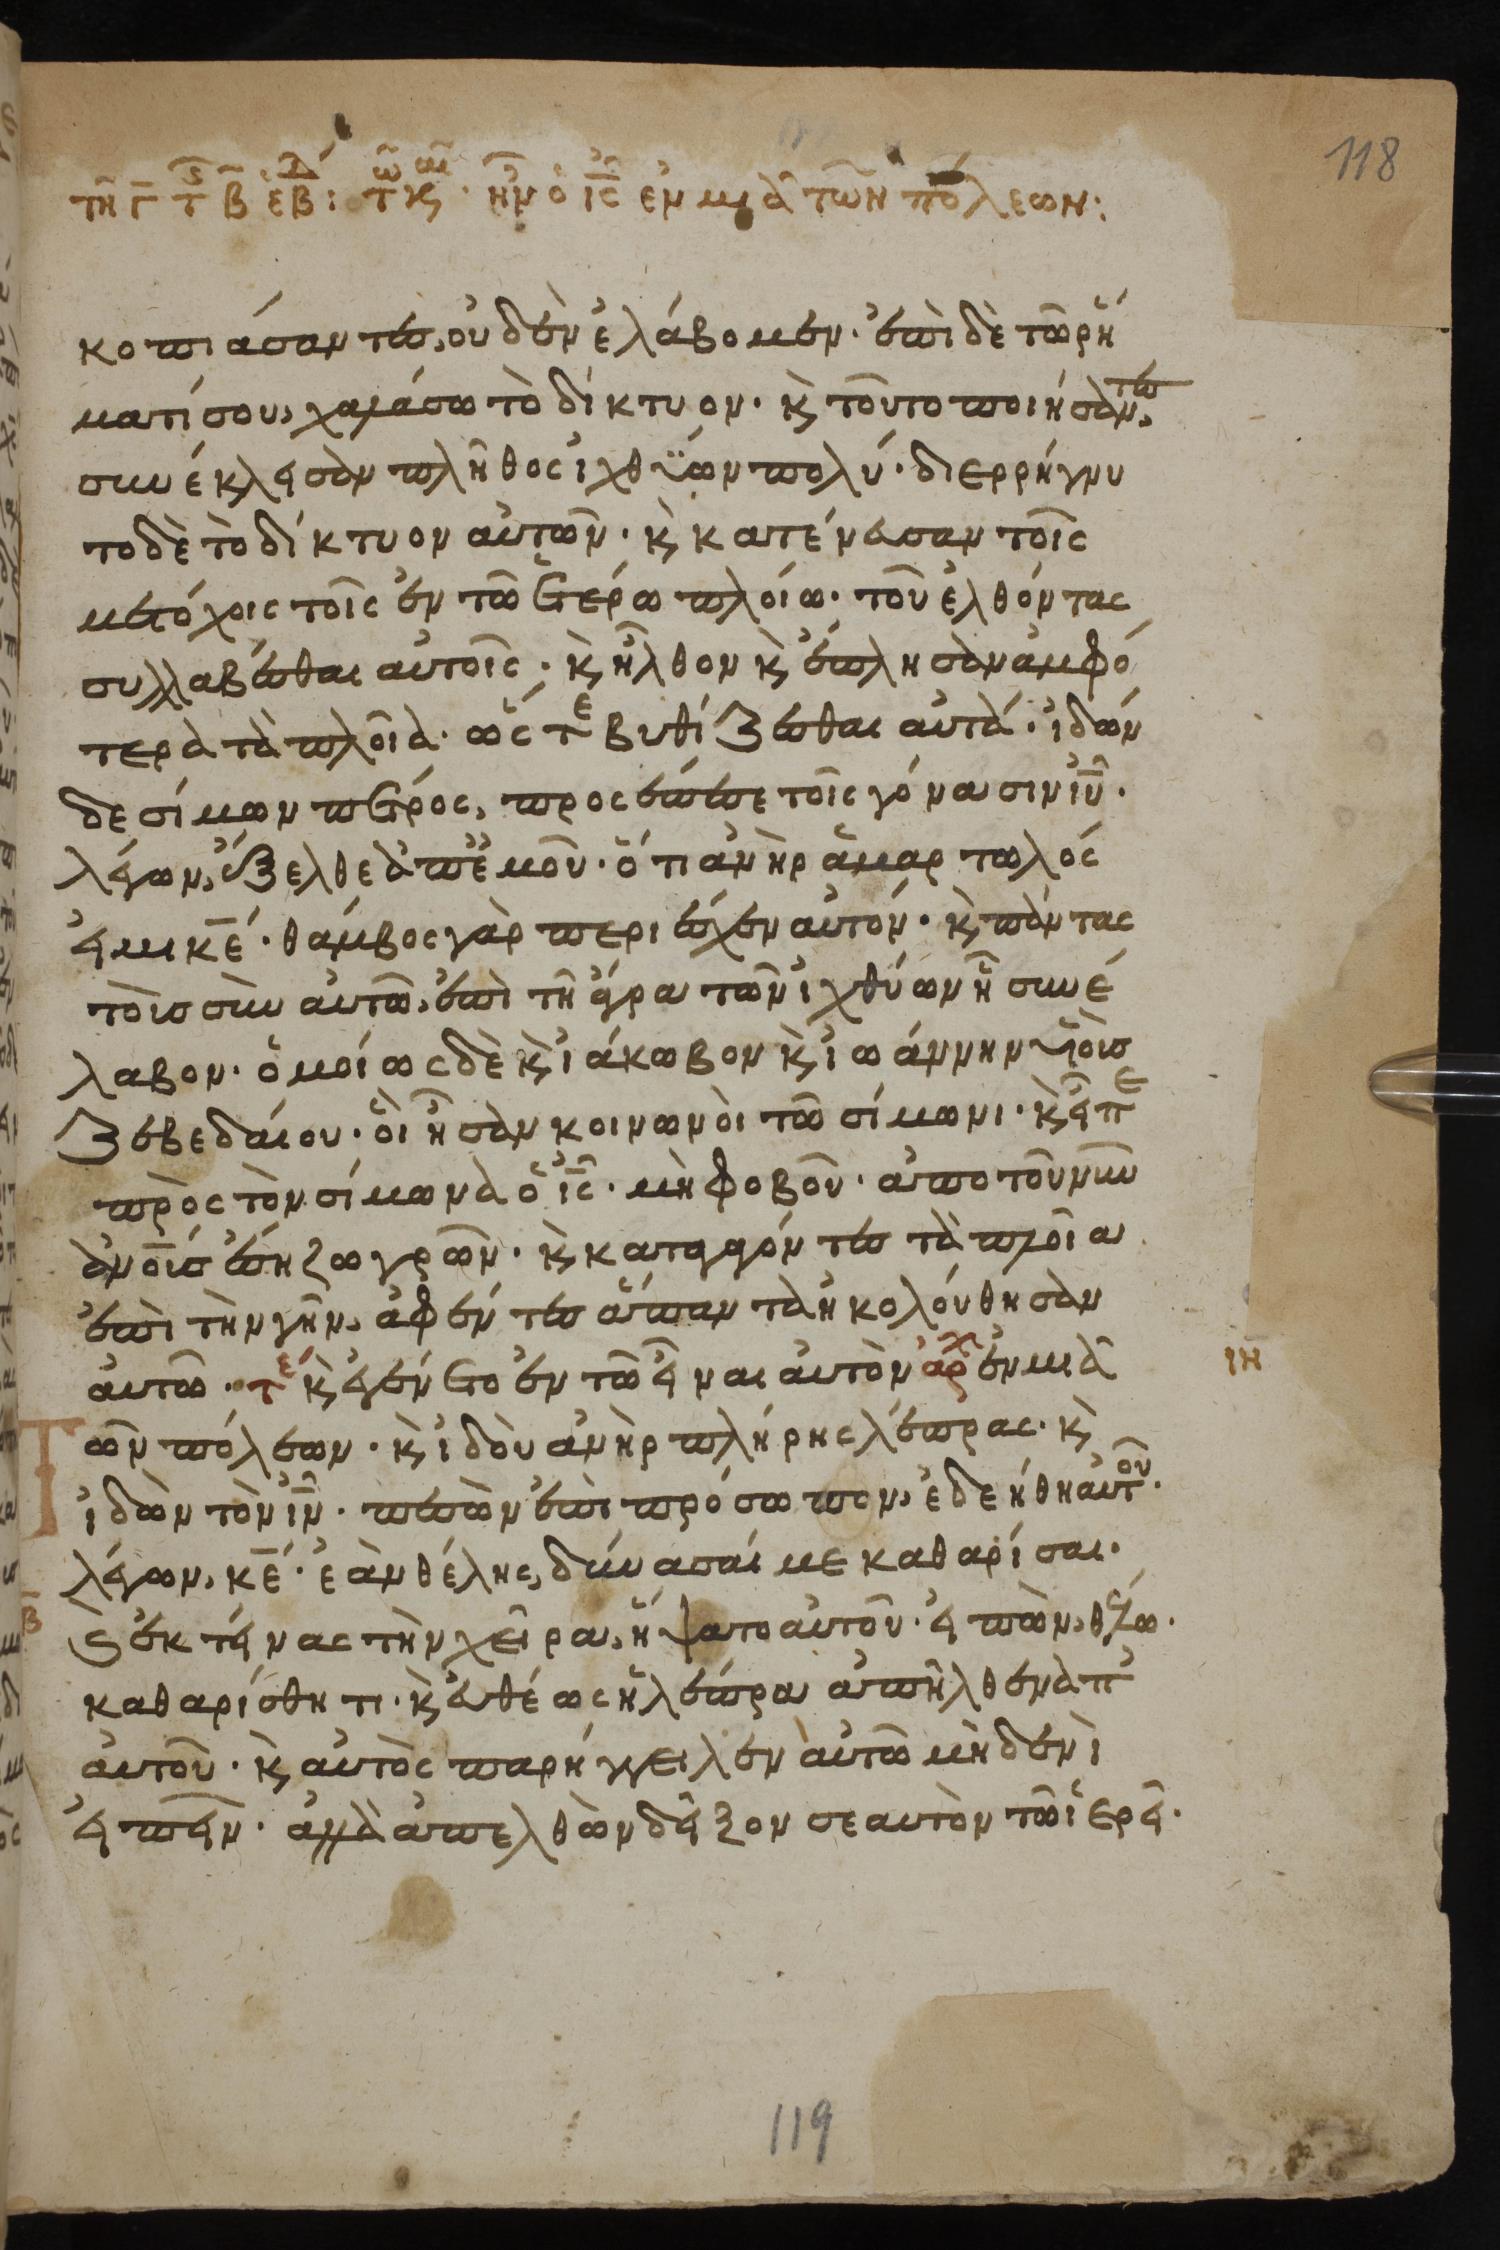 118
τῆ Γ̅ τ̅ς̅ β̅ ἑβδ: τῶ κ̅ς̅ · ἦν ὁ ι̅ς̅ ἐν μιᾶ τῶν πόλεων:
κοπιάσαντες, οὐδὲν ἐλάβομεν · ἐπὶ δὲ τῶ ῥή
ματί σου, χαλάσω τὸ δίκτυον · κ̀ τοῦτο ποιήσαντες,
συνέκλεισαν πλῆθος ἰχθϋων πολύ · διερρήγνυ
το δὲ τὸ δίκτυον αὐτῶν · κ̀ κατένευσαν τοῖς
μετόχοις τοῖς ἐν τῶ ἑτέρω πλοίω · τοῦ ἐλθόντας
συλλαβέσθαι αὐτοῖς · κ̀ ἦλθον κ̀ ἔπλησαν ἀμφό
τερα τὰ πλοῖα · ὥστε βυθίζεσθαι αὐτά · ἰδών
δε σίμων πετρός, προσέπεσε τοῖς γόνασιν ι̅υ̅ ·
λέγων, ἔξελθε ἀπ' ἐμοῦ · ὅτι ἀνὴρ ἁμαρτωλός
εἰμι κ̅ε̅ · θάμβος γὰρ περιέσχεν αὐτόν · κ̀ πάντας
τοὶς σὺν αυτῶ, ἐπὶ τῆ ἄγρα τῶν ἰχθύων ἧ συνέ
λαβον · ὁμοίως δὲ κ̀ ἰάκωβον κ̀ ἰωάννην υἱοὶς
ζεβεδαίου · οἳ ἦσαν κοινωνοὶ τῶ σίμωνι · κ̀ εἶπε
πρὸς τὸν σίμωνα ὁ ι̅ς̅ · μὴ φοβοῦ · ἀπο τοῦ νῦν
α̅ν̅ο̅ι̅ς̅ ἔση ζωγρῶν · κ̀ καταγαγόντες τὰ πλοῖα
ἐπὶ τὴν γῆν, ἀφέντες ἅπαντα ἠκολούθησαν
ἀυτῶ · τέ κ̀ ἐγένετο ἐν τῶ εἶναι ἀυτὸν ἀρχ ἐν μιᾶ
ῑη̅
Τ ῶν πόλεων · κ̀ ἰδοὺ ἀνὴρ πλήρης λέπρας · κ̀
ἰδὼν τὸν ι̅ν̅ · πεσὼν ἐπὶ πρόσωπον, ἐδεήθη αὐτοῦ ·
λέγων, κ̅ε̅ · ἐὰν θέλης, δύνασαί με καθαρίσαι ·
β̅
κ̀ ἐκτείνας τὴν χεῖρα, ἥψατο αὐτοῦ · εἰπὼν, θέλω ·
καθαρίσθητι · κ̀ εὐθέως ἡ λέπρα ἀπῆλθεν ἀπ'
ἀυτοῦ · κ̀ αυτὸς παρήγγειλεν αὐτῶ μὴδενὶ
εἰπεῖν · ἀλλὰ ἀπελθὼν δεῖξον σεαυτὸν τῶ ἱερεῖ ·
119